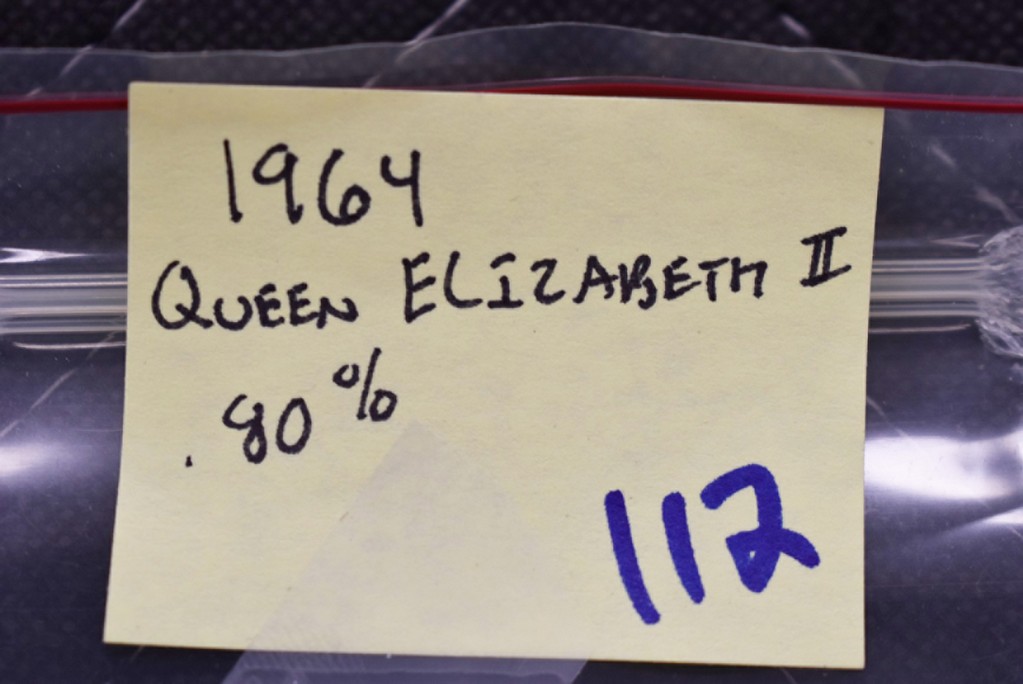 1964
QUEEN ELIZABETH II
.80%
112